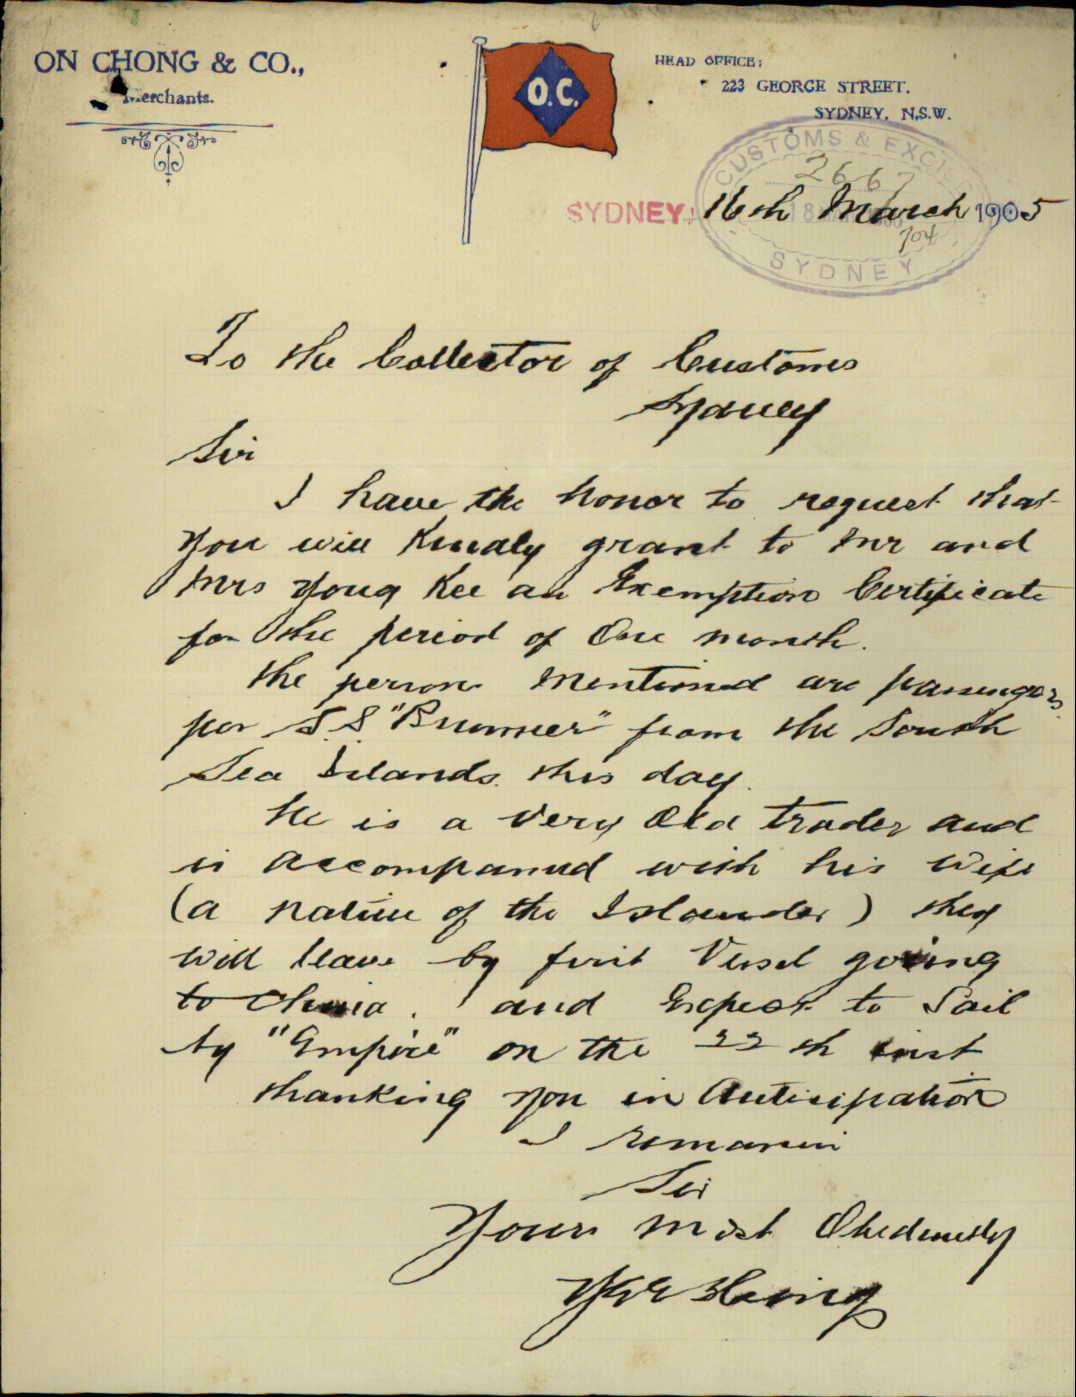 ON CHONG & CO.,
Merchants.
O.C.
HEAD OFFICE:
223 GEORGE STREET.
SYDNEY, N.S.W.
CUSTOMS & EXCISE
2667
SYDNEY, 16th March 1905
18
704
SYDNEY
To the Collector of Customs
Sydney
Sir
I have the honor to request that
you will Kindly grant to Mr and
Mrs Young Kee an Exemption Certificate
for the period of One month.
the persons Mentioned are passengers
per S.S "Brunner" from the South
Sea Islands this day.
He is a Very Old trader and
is accompanied with his Wife
(a native of the Islander) they
will leave by first Vessel going
to China. and Expect to Sail
by "Empire" on the 22th inst
thanking you in Anticipation
I remain
Sir
Yours most Obediently